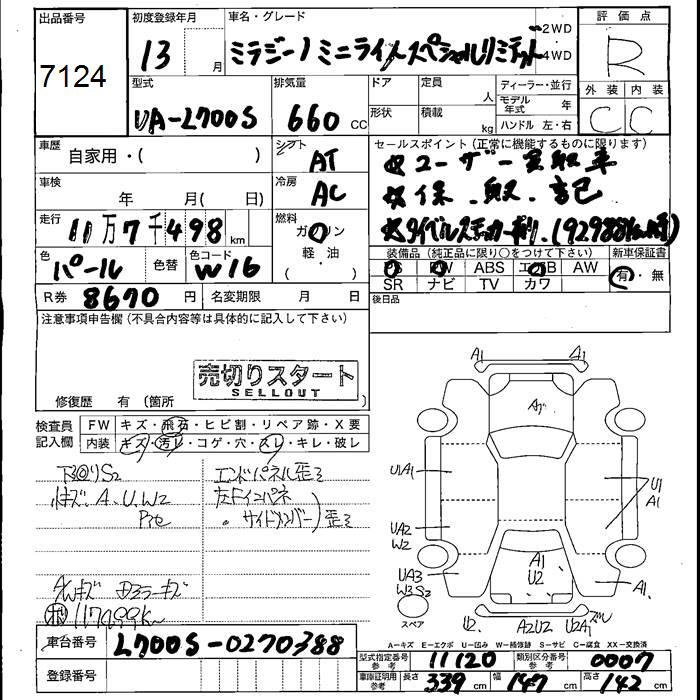 出品番号 初度登録年月 車名・グレード 評価点
7124 13 月 ミラジーノミニライトスペシャルリミテッド 2WD 4WD R
型式 排気量 ドア 定員 ディーラー・並行 外装 内装
UA-L700S 660 CC 形状 人 積載 kg モデル年式 年 ハンドル 左・右 C C
車歴 自家用・( ) シフト AT セールスポイント(正常に機能するものに限ります)
☆ユーザー買取車
車検 年 月( 日) 冷房 AC
☆保.取.書
走行 11万7千498 km 燃料 ガソリン 軽・油 ( )
☆タイベルステッカー有り.(92988km時)
色 パール 色替 色コード W16
装備品(純正品に限り○をつけて下さい) 新車保証書
PS PW ABS エアB AW 有・無
SR ナビ TV カワ
R券 8670 円 名変期限 月 日 後日品
注意事項申告欄(不具合内容等は具体的に記入して下さい)
売切りスタート
SELLOUT
修復歴 有(箇所 )
検査員記入欄 FW キズ・飛石・ヒビ割・リペア跡・X要
内装 キズ・汚レ・コゲ・穴・スレ・キレ・破レ
下回りS2 エンドパネル歪ミ
キズ.A.U.W2 左Fインパネ
サイドメンバー)歪ミ
AWキズ ミラーキズ
117499K
A1 A1
A1
U1A1 U1 A1
UA2 W2
A1 U2
UA3 W3S2 A1
スペア
U2 A2U2 U2A1 ズレ
A=キズ E=エクボ U=凹み W=補修跡 S=サビ C=腐食 XX=交換済
車台番号 L700S-0270388
型式指定番号 参考 11120 類別区分番号 参考 0007
登録番号
車庫証明用 参考 長さ 339 cm 幅 147 cm 高さ 142 cm